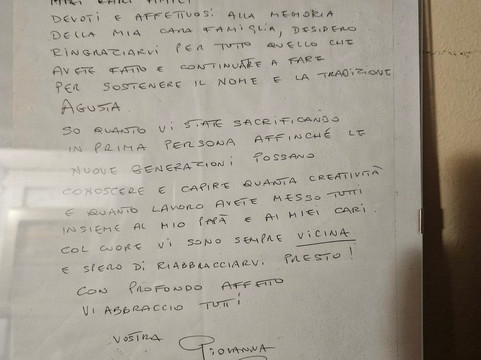 MIEI CARI AMICI
DEVOTI E AFFETTUOSI ALLA MEMORIA
DELLA MIA CARA FAMIGLIA, DESIDERO
RINGRAZIARVI PER TUTTO QUELLO CHE
AVETE FATTO E CONTINUATE A FARE
PER SOSTENERE IL NOME E LA TRADIZIONE
AGUSTA.
SO QUANTO VI STATE SACRIFICANDO
IN PRIMA PERSONA AFFINCHÉ LE
NUOVE GENERAZIONI POSSANO
CONOSCERE E CAPIRE QUANTA CREATIVITÀ
E QUANTO LAVORO AVETE MESSO TUTTI
INSIEME AL MIO PAPÀ E AI MIEI CARI.
COL CUORE VI SONO SEMPRE VICINA
E SPERO DI RIABBRACCIARVI PRESTO!
CON PROFONDO AFFETTO
VI ABBRACCIO TUTTI!
VOSTRA GIOVANNA